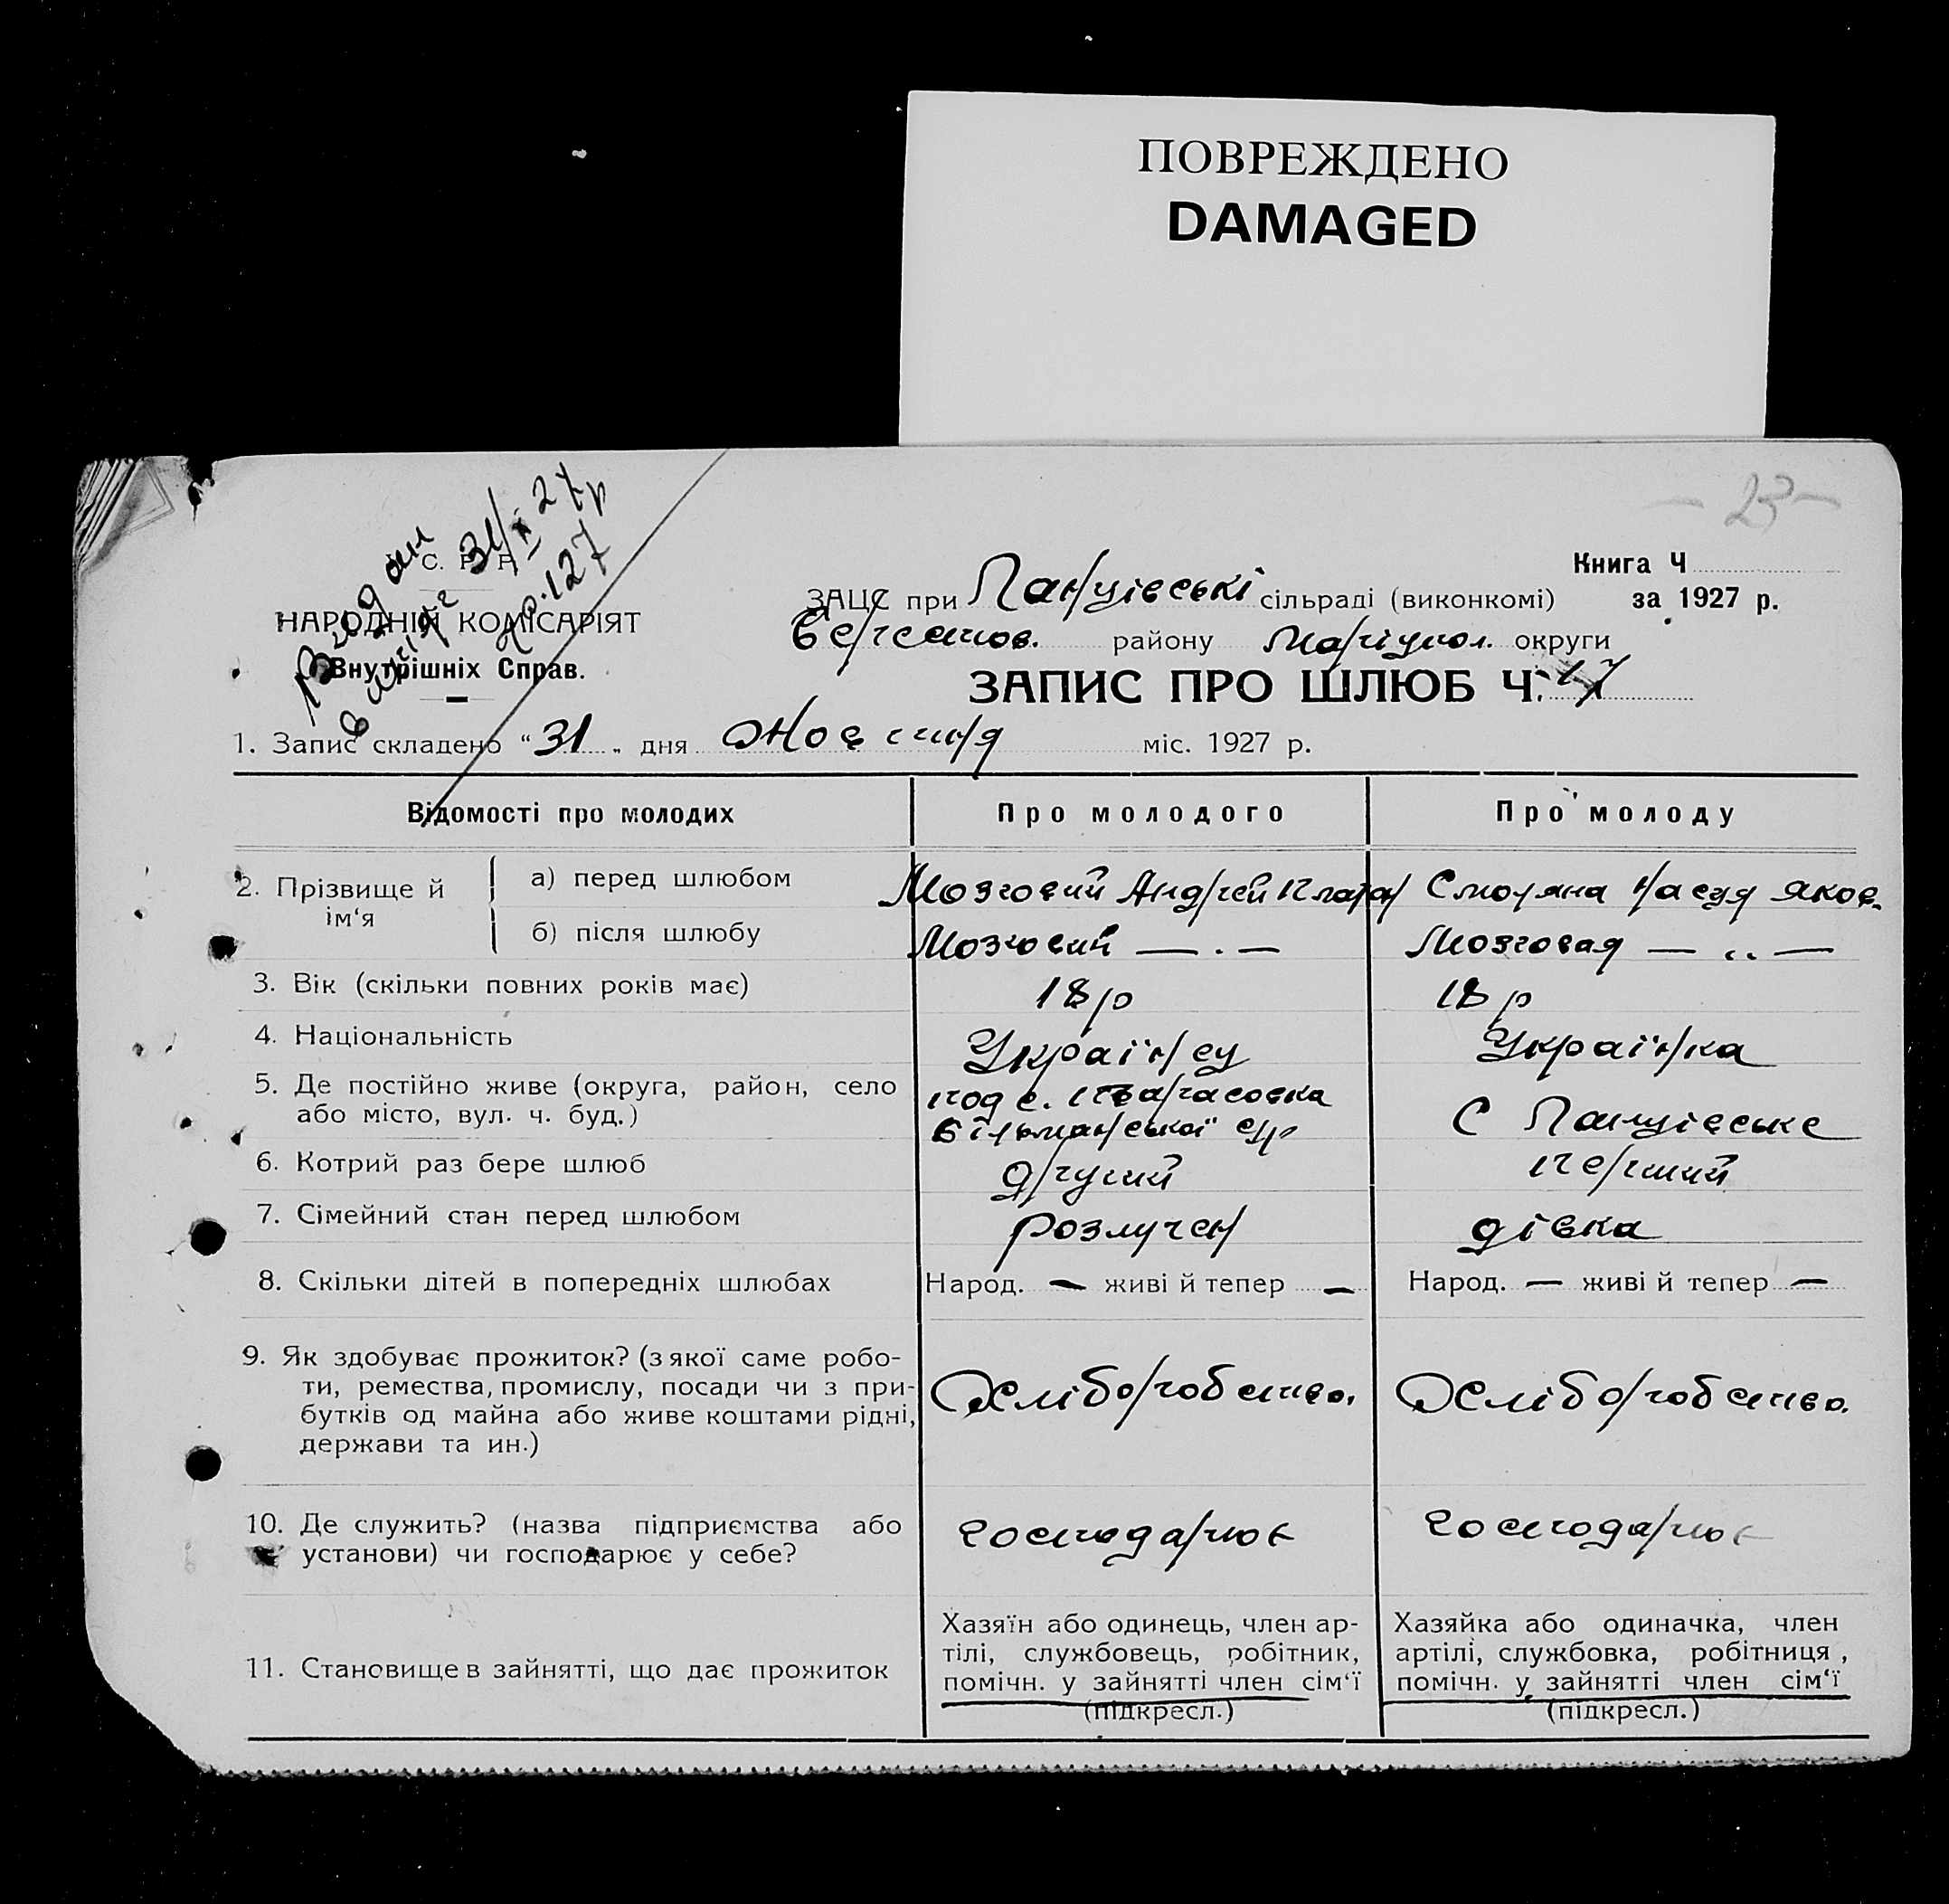 ПОВРЕЖДЕНО
DAMAGED
- 23 -
31/X 27 р
№ 127
С. Р. Р.
НАРОДНІЙ КОМІСАРІЯТ
Внутрішніх Справ.
Книга Ч
за 1927 р.
ЗАЦС при Панцівські сільраді (виконкомі)
району Маріупол. округи
ЗАПИС ПРО ШЛЮБ Ч. 17
1. Запис складено "31" дня Жовтня міс. 1927 р.
Відомості про молодих Про молодого Про молоду
2. Прізвище й ім'я
а) перед шлюбом Мозговий Андрей Платон Смоляна Яков.
б) після шлюбу Мозговий — . — Мозговая — .. —
3. Вік (скільки повних років має) 18 р 18 р
4. Національність Українец Українка
5. Де постійно живе (округа, район, село
або місто, вул. ч. буд.)
с. Тарасовка
Більманської с/р
С Панцівське
6. Котрий раз бере шлюб другий перший
7. Сімейний стан перед шлюбом розлучен дівка
8. Скільки дітей в попередніх шлюбах Народ. — живі й тепер — Народ. — живі й тепер —
9. Як здобуває прожиток? (з якої саме робо-
ти, ремества, промислу, посади чи з при-
бутків од майна або живе коштами рідні,
держави та ин.)
Хліборобство. Хліборобство.
10. Де служить? (назва підприємства або
установи) чи господарює у себе?
господарює господарює
11. Становище в зайнятті, що дає прожиток
Хазяїн або одинець, член ар-
тілі, службовець, робітник,
помічн. у зайнятті член сім'ї
(підкресл.)
Хазяйка або одиначка, член
артілі, службовка, робітниця,
помічн. у зайнятті член сім'ї
(підкресл.)